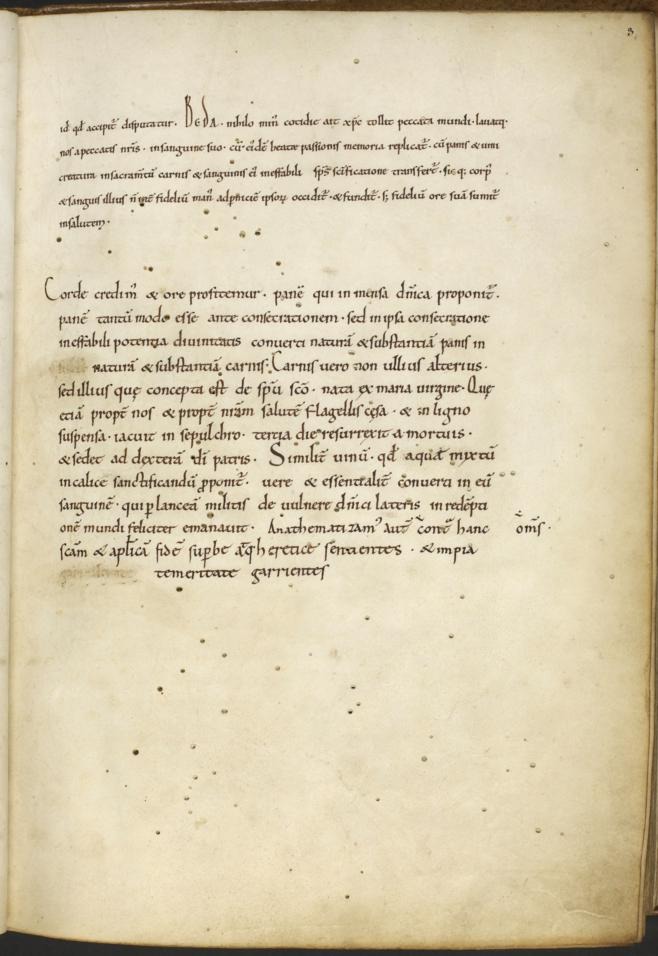 3
id qd accipit disputatur. BEDA. nihilo min cotidie ait xpc tollit peccata mundi. lauatq.
nos a peccatis nris. in sanguine suo. cū eidē beatae passionis memoria replicat. cū panis & uini
creatura in sacramtū carnis & sanguinis ei ineffabili sps scificatione transfert. sicq; corp
& sanguis illius n fideliū man ad pniciē ipsoꝝ occidit. & fundit. s; fideliū ore suā sumit
in salutem.
Corde credim & ore profitemur. panē qui in mensa dnica proponit.
panē tantū modo esse ante consecrationem. sed in ipsa consecratione
ineffabili potentia diuinitatis conuerti naturā & substantiā panis in
naturā & substantiā carnis. Carnis uero non ullius alterius.
sed illius quę concepta est de spu sco. nata ex maria uirgine. Quę
etiā propt nos & propt nram salutē flagellis cęsa. & in ligno
suspensa. iacuit in sepulchro. tertia die resurrexit a mortuis.
& sedet ad dexterā di patris. Similit uinū. qd aquā myxtū
in calice sanctificandū pponit. uere & essentialit conuerti in eū
sanguinē. qui p lanceā militis de uulnere dnici lateris in redēpti
onē mundi feliciter emanauit. Anathematizam aut cont hanc oms.
scam & aplicā fidē superbe atq heretice sentientes. & impia
temeritate garrientes